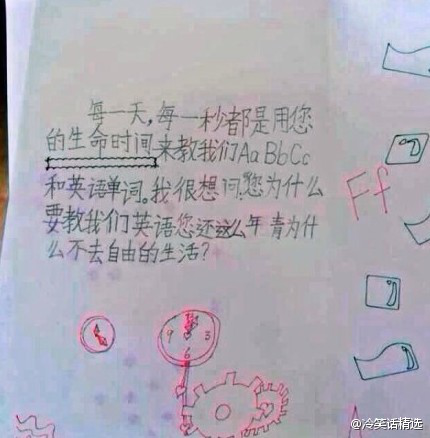 每一天，每一秒都是用您
的生命时间来教我们AaBbCc
和英语单词。我很想问，您为什么
要教我们英语您还这么年青为什
么不去自由的生活？
Ff
9 3
6
@冷笑话精选